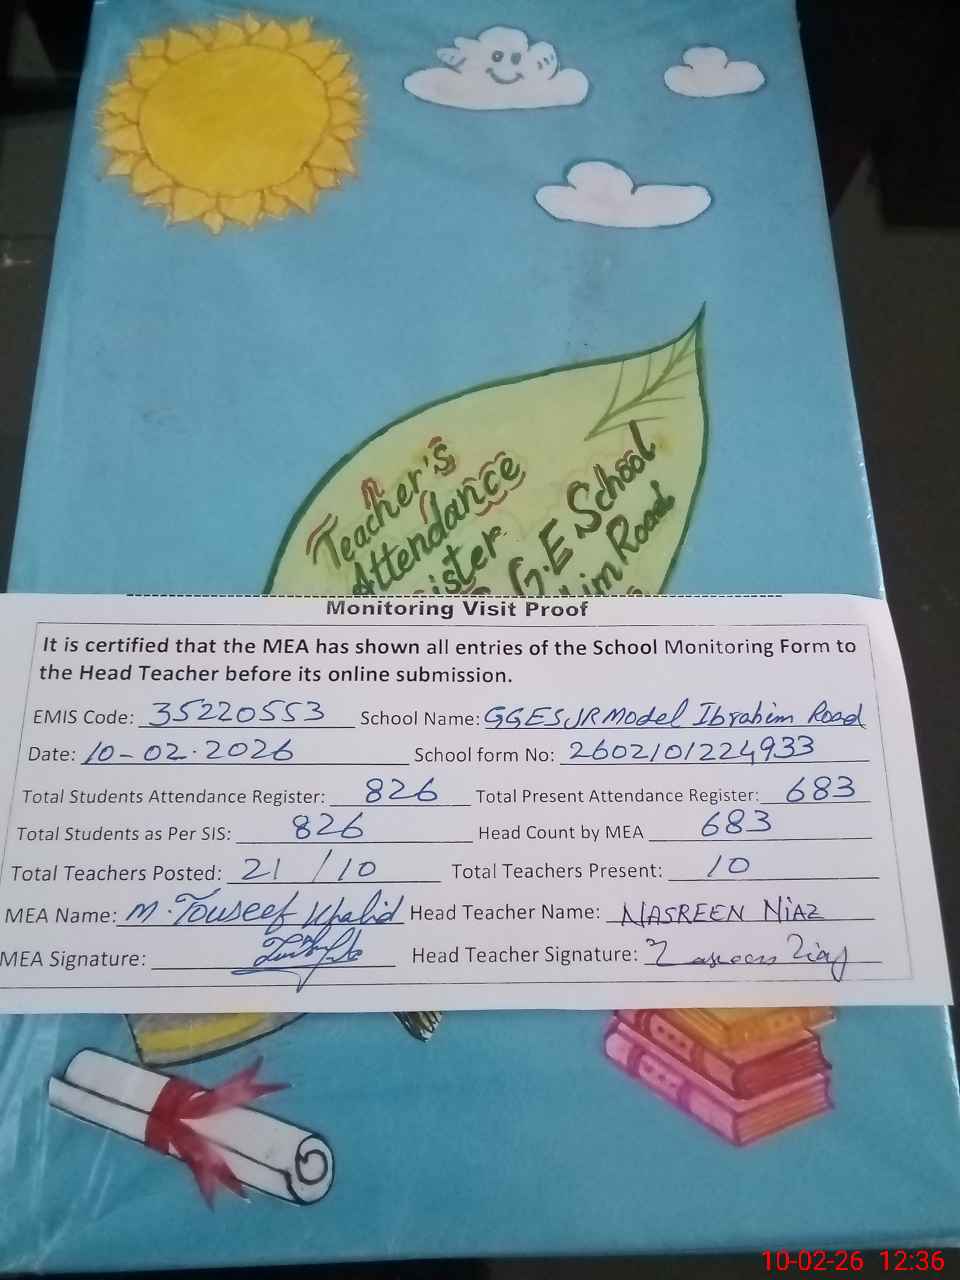 Teacher's
Attendance
ister
G.E School
him Road
Monitoring Visit Proof
It is certified that the MEA has shown all entries of the School Monitoring Form to
the Head Teacher before its online submission.
EMIS Code: 35220553 School Name: GGES JR Model Ibrahim Road
Date: 10-02-2026 School form No: 2602101224933
Total Students Attendance Register: 826 Total Present Attendance Register: 683
Total Students as Per SIS: 826 Head Count by MEA 683
Total Teachers Posted: 21 / 10 Total Teachers Present: 10
MEA Name: M. Touseef Khalid Head Teacher Name: NASREEN NiAZ
MEA Signature: Head Teacher Signature:
10-02-26 12:36